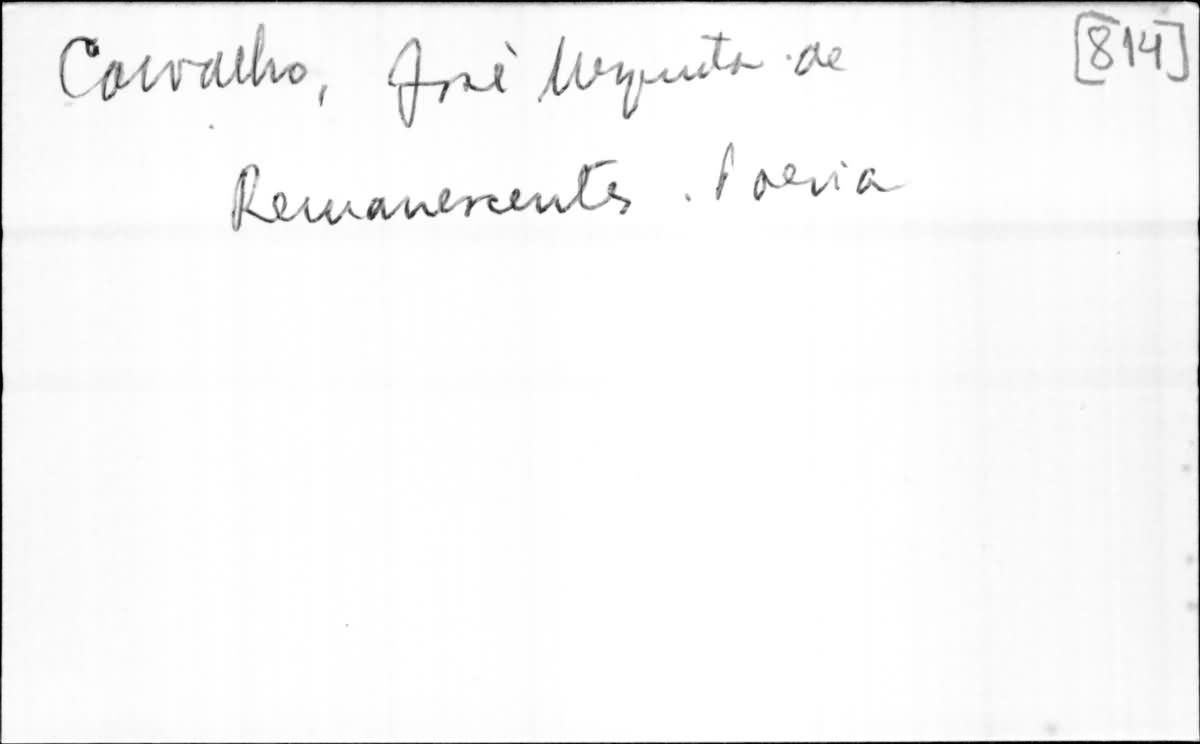 Carvalho, José Mesquita de [814]
Remanescentes. Poesia